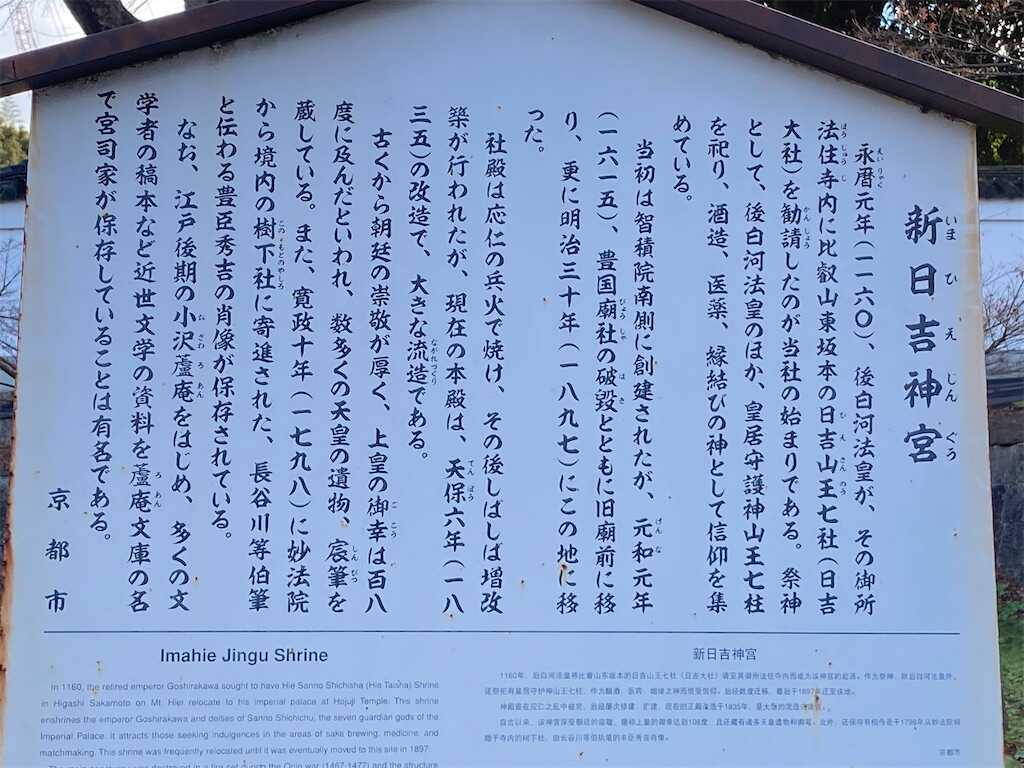 新日吉神宮
いまひえじんぐう
永暦元年(一一六〇)、後白河法皇が、その御所
法住寺内に比叡山東坂本の日吉山王七社(日吉
大社)を勧請したのが当社の始まりである。祭神
として、後白河法皇のほか、皇居守護神山王七柱
を祀り、酒造、医薬、縁結びの神として信仰を集
めている。
当初は智積院南側に創建されたが、元和元年
(一六一五)、豊国廟社の破毀とともに旧廟前に移
り、更に明治三十年(一八九七)にこの地に移
った。
社殿は応仁の兵火で焼け、その後しばしば増改
築が行われたが、現在の本殿は、天保六年(一八
三五)の改造で、大きな流造である。
古くから朝廷の崇敬が厚く、上皇の御幸は百八
度に及んだといわれ、数多くの天皇の遺物、宸筆を
蔵している。また、寛政十年(一七九八)に妙法院
から境内の樹下社に寄進された、長谷川等伯筆
と伝わる豊臣秀吉の肖像が保存されている。
なお、江戸後期の小沢蘆庵をはじめ、多くの文
学者の稿本など近世文学の資料を蘆庵文庫の名
で宮司家が保存していることは有名である。
京都市
Imahie Jingu Shrine
In 1160, the retired emperor Goshirakawa sought to have Hie Sanno Shichisha (Hie Taisha) Shrine
in Higashi Sakamoto on Mt. Hiei relocate to his imperial palace at Hojuji Temple. This shrine
enshrines the emperor Goshirakawa and deities of Sanno Shichichu, the seven guardian gods of the
Imperial Palace. It attracts those seeking indulgences in the areas of sake brewing, medicine, and
matchmaking. This shrine was frequently relocated until it was eventually moved to this site in 1897.
The main sanctuary was destroyed in a fire set during the Onin war (1467-1477) and the structure
新日吉神宫
京都市